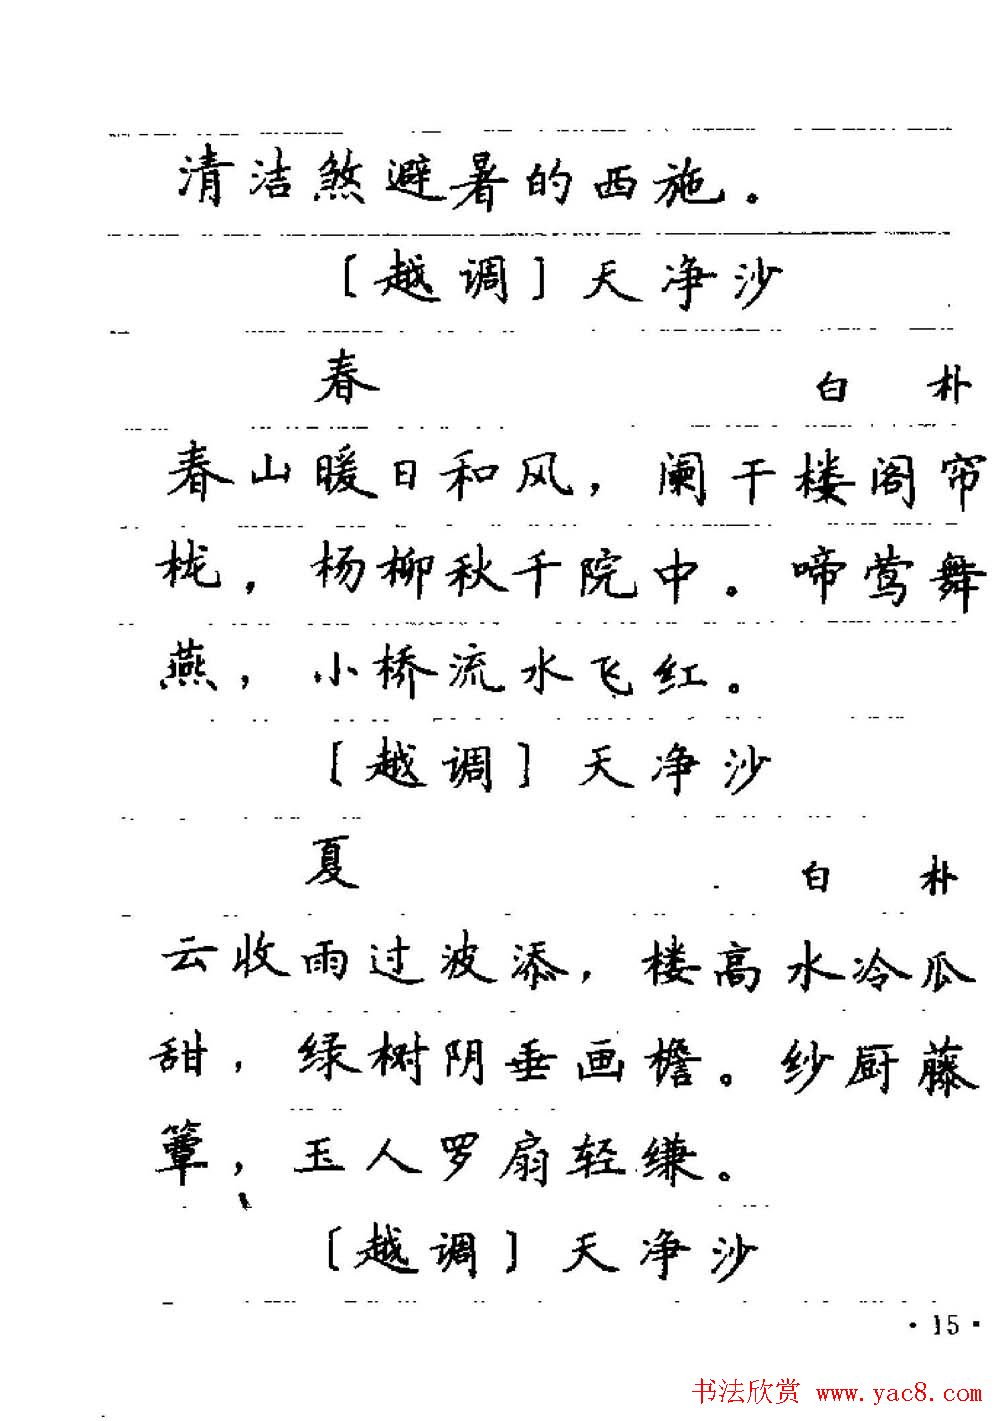 清洁煞避暑的西施。
〔越调〕天净沙
春 白 朴
春山暖日和风，阑干楼阁帘
栊，杨柳秋千院中。啼莺舞
燕，小桥流水飞红。
〔越调〕天净沙
夏 白 朴
云收雨过波添，楼高水冷瓜
甜，绿树阴垂画檐。纱厨藤
簟，玉人罗扇轻缣。
〔越调〕天净沙
·15·
书法欣赏 www.yac8.com